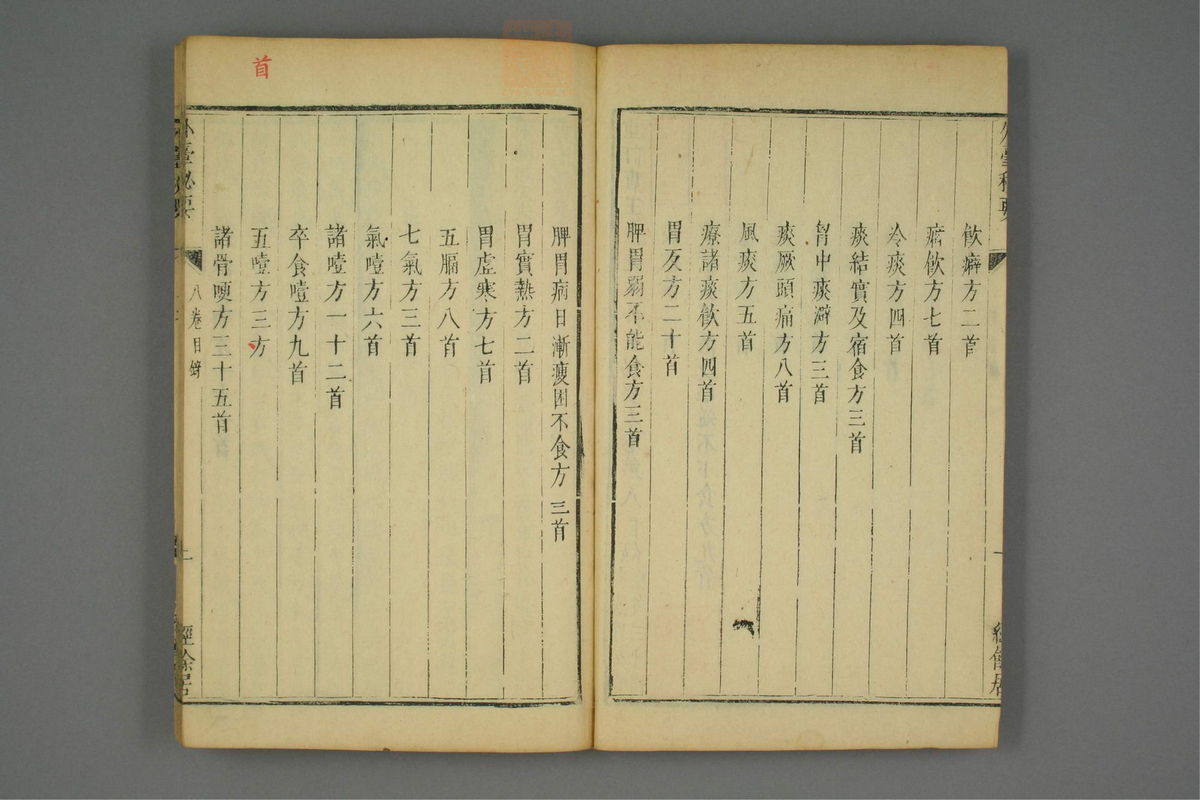 飲癖方二首
癖飲方七首
冷痰方四首
痰結實及宿食方三首
胷中痰澼方三首
痰厥頭痛方八首
風痰方五首
療諸痰飲方四首
胃反方二十首
脾胃弱不能食方三首
脾胃病日漸瘦困不食方三首
胃實熱方二首
胃虛寒方七首
五膈方八首
七氣方三首
氣噎方六首
諸噎方一十二首
卒食噎方九首
五噎方三方
首
諸骨哽方三十五首
外臺祕要
八卷目錄
經餘居